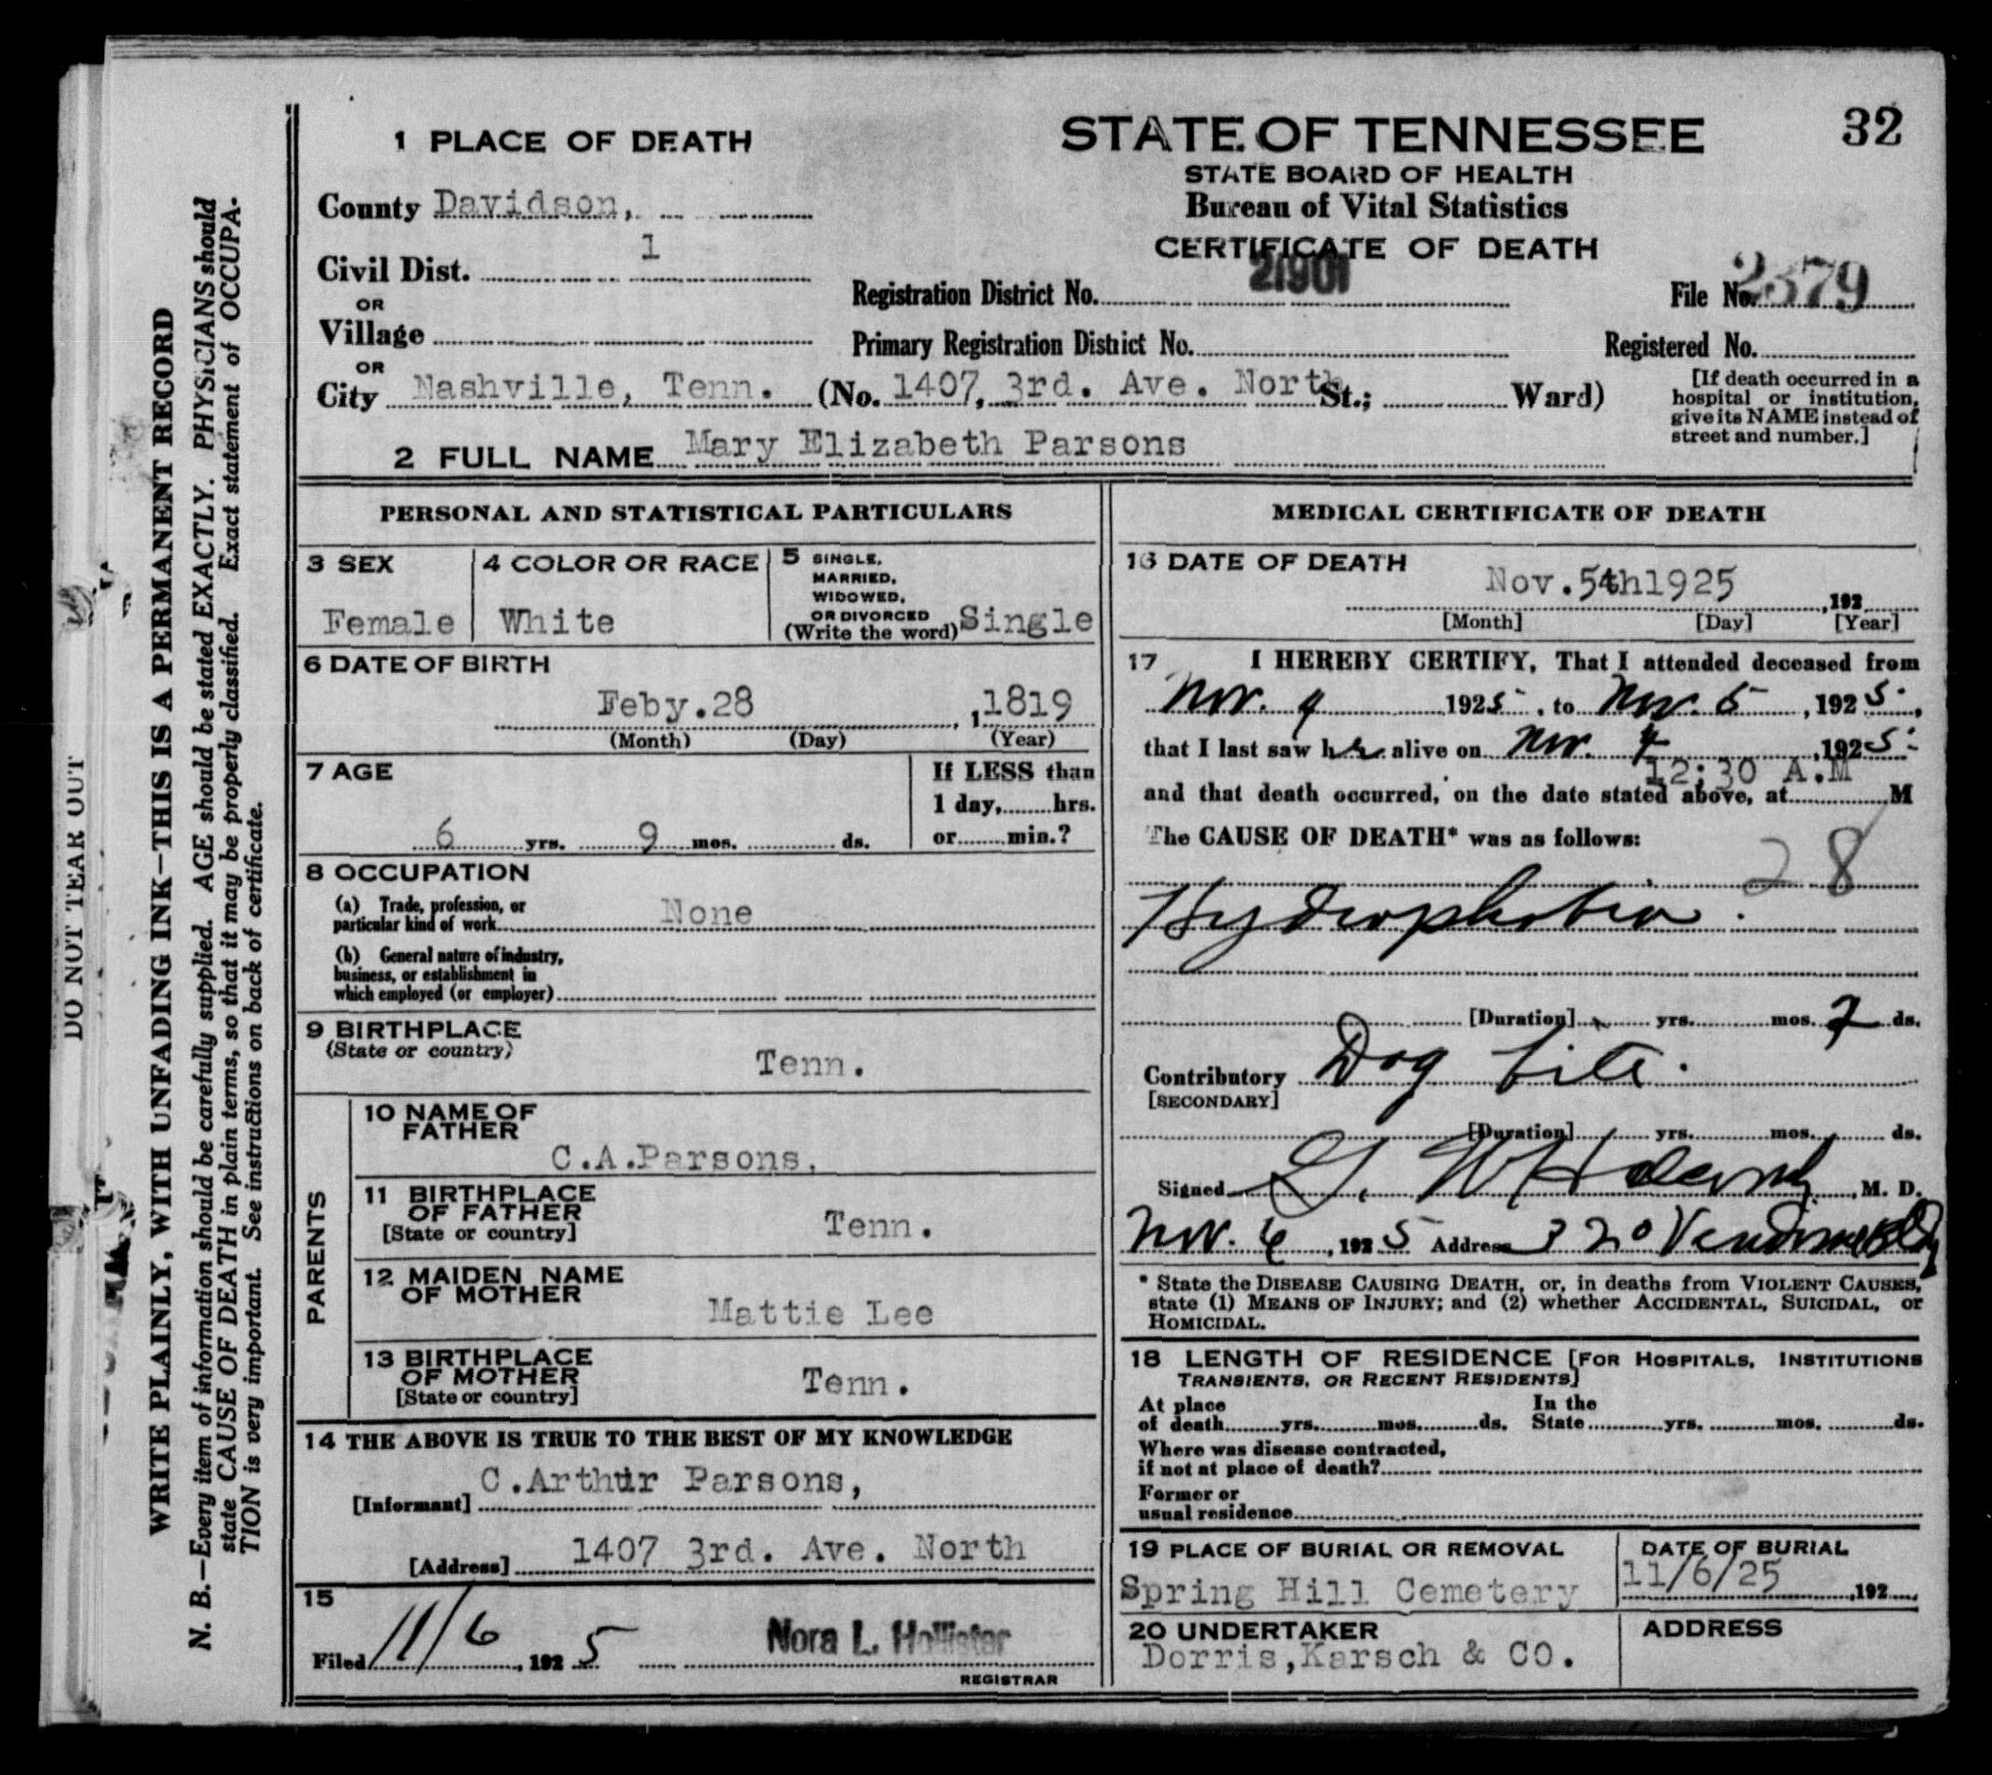 32
1 PLACE OF DEATH
STATE OF TENNESSEE
STATE BOARD OF HEALTH
Bureau of Vital Statistics
CERTIFICATE OF DEATH
County Davidson,
Civil Dist. 1
OR
Village
OR
City Nashville, Tenn. (No. 1407, 3rd. Ave. North St.; Ward)
Registration District No. 21901
File No. 2379
Primary Registration District No.
Registered No.
[If death occurred in a
hospital or institution,
give its NAME instead of
street and number.]
2 FULL NAME Mary Elizabeth Parsons
PERSONAL AND STATISTICAL PARTICULARS
3 SEX
Female
4 COLOR OR RACE
White
5 SINGLE,
MARRIED,
WIDOWED,
OR DIVORCED
(Write the word) Single
6 DATE OF BIRTH
Feby.28, 1819
(Month) (Day) (Year)
7 AGE
6 yrs. 9 mos. ds.
If LESS than
1 day, hrs.
or min.?
8 OCCUPATION
(a) Trade, profession, or
particular kind of work None
(b) General nature of industry,
business, or establishment in
which employed (or employer)
9 BIRTHPLACE
(State or country)
Tenn.
PARENTS
10 NAME OF
FATHER
C.A.Parsons,
11 BIRTHPLACE
OF FATHER
[State or country] Tenn.
12 MAIDEN NAME
OF MOTHER
Mattie Lee
13 BIRTHPLACE
OF MOTHER
[State or country] Tenn.
14 THE ABOVE IS TRUE TO THE BEST OF MY KNOWLEDGE
[Informant] C.Arthur Parsons,
[Address] 1407 3rd. Ave. North
15
Filed 11/6, 1925 Nora L. Hollister
REGISTRAR
MEDICAL CERTIFICATE OF DEATH
16 DATE OF DEATH
Nov.5th1925, 192
[Month] [Day] [Year]
17 I HEREBY CERTIFY, That I attended deceased from
Nov. 4 1925, to Nov. 5, 1925,
that I last saw her alive on Nov. 4, 1925
12:30 A.M
and that death occurred, on the date stated above, at M
The CAUSE OF DEATH* was as follows:
28
Hydrophobia.
[Duration] yrs. mos. 2 ds.
Contributory Dog bite.
[SECONDARY]
[Duration] yrs. mos. ds.
Signed G. W. M. D.
Nov. 6, 1925 Address 320 Vendome Bldg
* State the DISEASE CAUSING DEATH, or, in deaths from VIOLENT CAUSES,
state (1) MEANS OF INJURY; and (2) whether ACCIDENTAL, SUICIDAL, or
HOMICIDAL.
18 LENGTH OF RESIDENCE [FOR HOSPITALS, INSTITUTIONS
TRANSIENTS, OR RECENT RESIDENTS]
At place
of death yrs. mos. ds.
In the
State yrs. mos. ds.
Where was disease contracted,
if not at place of death?
Former or
usual residence
19 PLACE OF BURIAL OR REMOVAL
Spring Hill Cemetery
DATE OF BURIAL
11/6/25, 192
20 UNDERTAKER
Dorris,Karsch & CO.
ADDRESS
DO NOT TEAR OUT
WRITE PLAINLY, WITH UNFADING INK—THIS IS A PERMANENT RECORD
N. B.—Every item of information should be carefully supplied. AGE should be stated EXACTLY. PHYSICIANS should
state CAUSE OF DEATH in plain terms, so that it may be properly classified. Exact statement of OCCUPA-
TION is very important. See instructions on back of certificate.